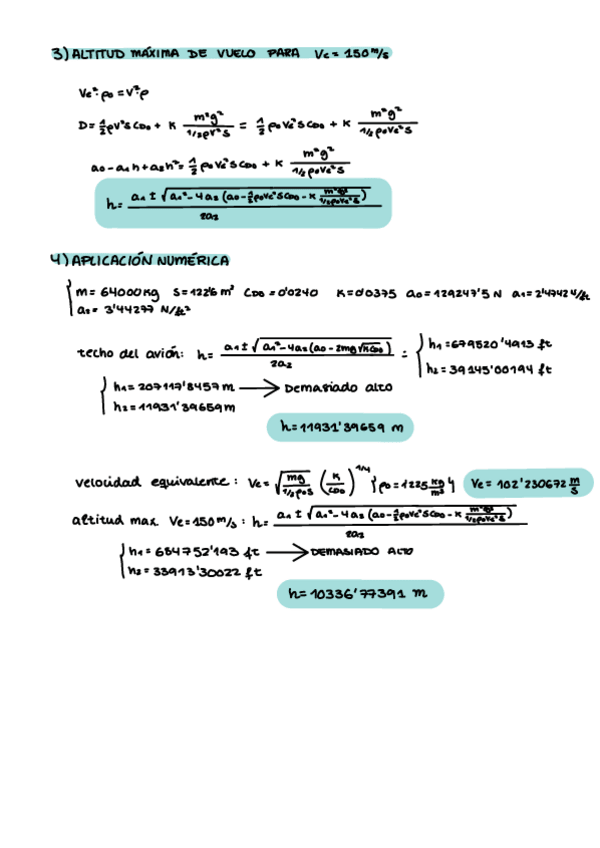 3) ALTITUD MÁXIMA DE VUELO PARA Ve = 150 m/s
Ve²·ρ0 = V²ρ
D = 1/2 ρV²SCD0 + K m²g²/(1/2ρV²S) = 1/2 ρ0Ve²SCD0 + K m²g²/(1/2ρ0Ve²S)
a0 - a1h + a2h² = 1/2 ρ0Ve²SCD0 + K m²g²/(1/2ρ0Ve²S)
h = (a1 ± √(a1² - 4a2(a0 - 1/2ρ0Ve²SCD0 - K m²g²/(1/2ρ0Ve²S))))/2a2
4) APLICACIÓN NUMÉRICA
m = 64000 kg S = 122'6 m² CD0 = 0'0240 K = 0'0375 a0 = 129247'5 N a1 = 2'4742 N/ft
a2 = 3'44277 N/ft²
techo del avión: h = (a1 ± √(a1² - 4a2(a0 - 2mg√(KCD0))))/2a2 = { h1 = 679520'4913 ft
h2 = 39145'00194 ft
h1 = 207117'8457 m → DEMASIADO ALTO
h2 = 11931'39659 m
h = 11931'39659 m
velocidad equivalente: Ve = √(mg/(1/2ρ0S)) (K/CD0)^1/4 {ρ0 = 1'225 kg/m³} Ve = 102'230672 m/s
altitud max Ve = 150 m/s: h = (a1 ± √(a1² - 4a2(a0 - 1/2ρ0Ve²SCD0 - K m²g²/(1/2ρ0Ve²S))))/2a2
h1 = 684752'193 ft → DEMASIADO ALTO
h2 = 33913'30022 ft
h = 10336'77391 m